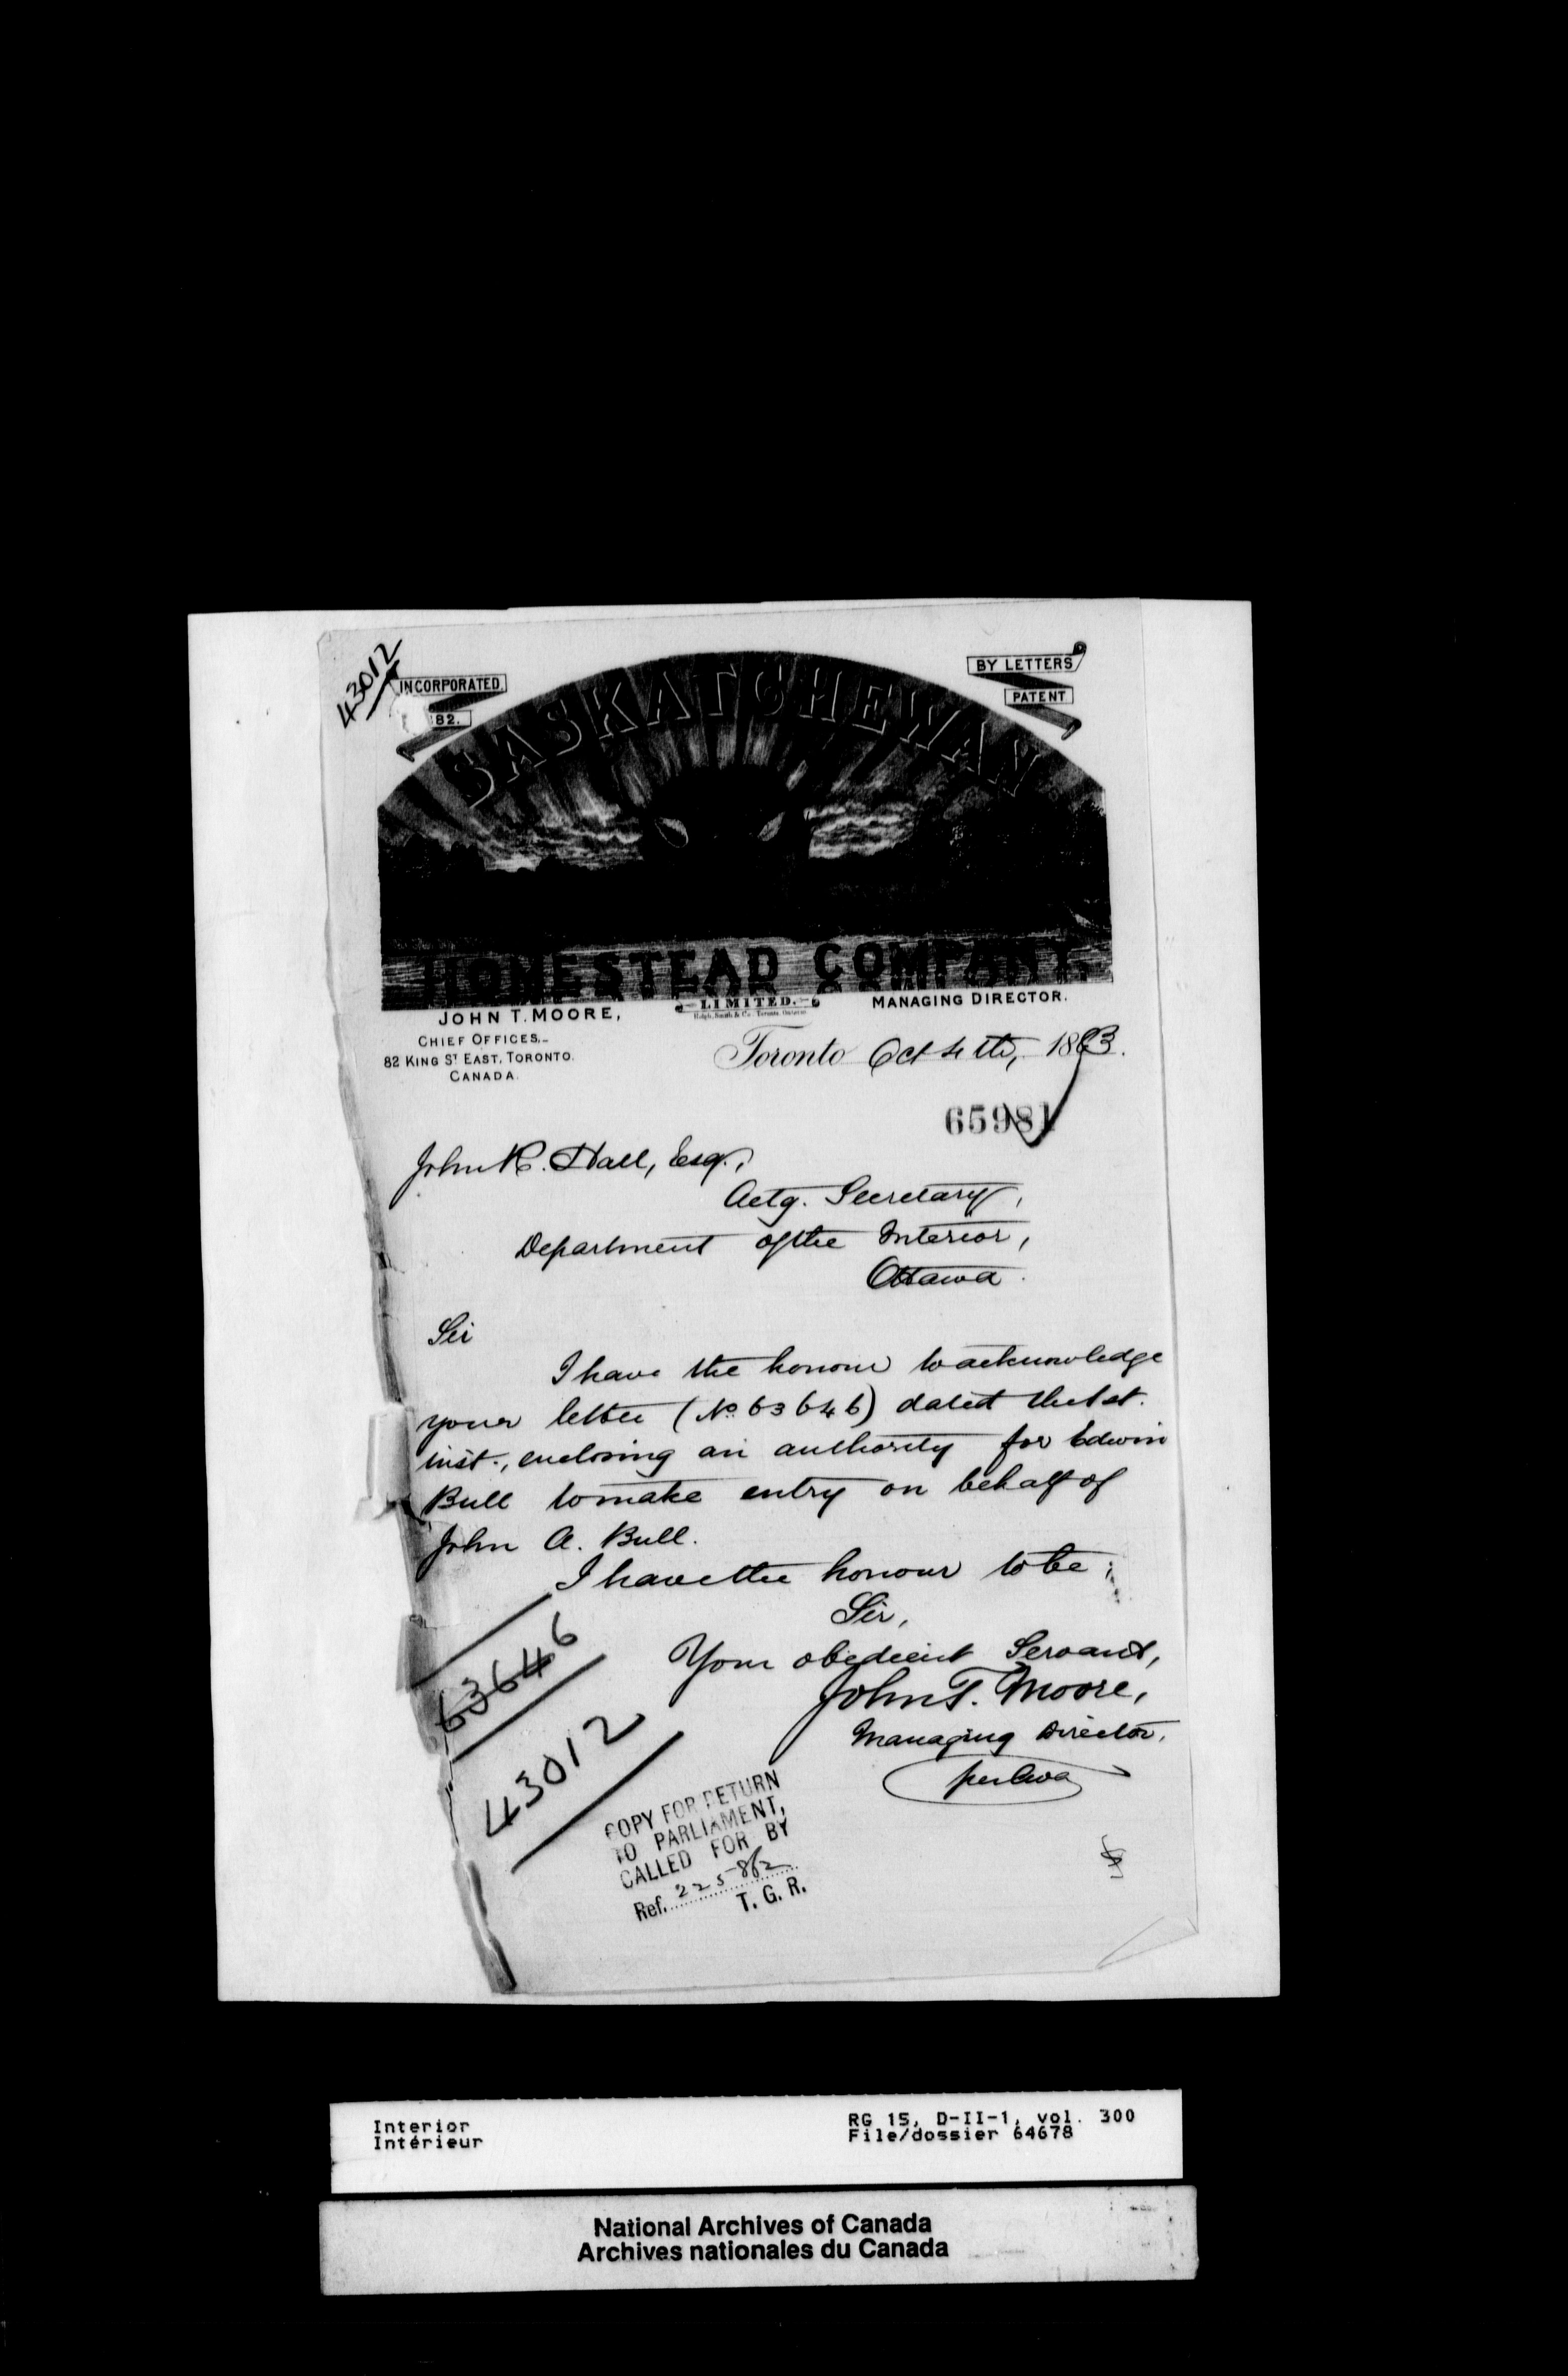 43012
INCORPORATED.
82.
BY LETTERS
PATENT
SASKATCHEWAN
HOMESTEAD COMPANY,
LIMITED.
JOHN T. MOORE,
MANAGING DIRECTOR.
CHIEF OFFICES,
82 KING ST EAST, TORONTO.
CANADA.
Toronto Oct 4th, 1883.
65981
John R. Hall, Esq.,
Actg. Secretary,
Department of the Interior,
Ottawa.
Sir
I have the honour to acknowledge
your letter (No 63646) dated the 1st.
inst., enclosing an authority for Edwin
Bull to make entry on behalf of
John A. Bull.
I have the honour to be;
Sir,
Your obedient Servant,
John T. Moore,
Managing Director.
63646
43012
COPY FOR RETURN
TO PARLIAMENT,
CALLED FOR BY
Ref. 225862
T. G. R.
Interior
Intérieur
RG 15, D-II-1, vol. 300
File/dossier 64678
National Archives of Canada
Archives nationales du Canada